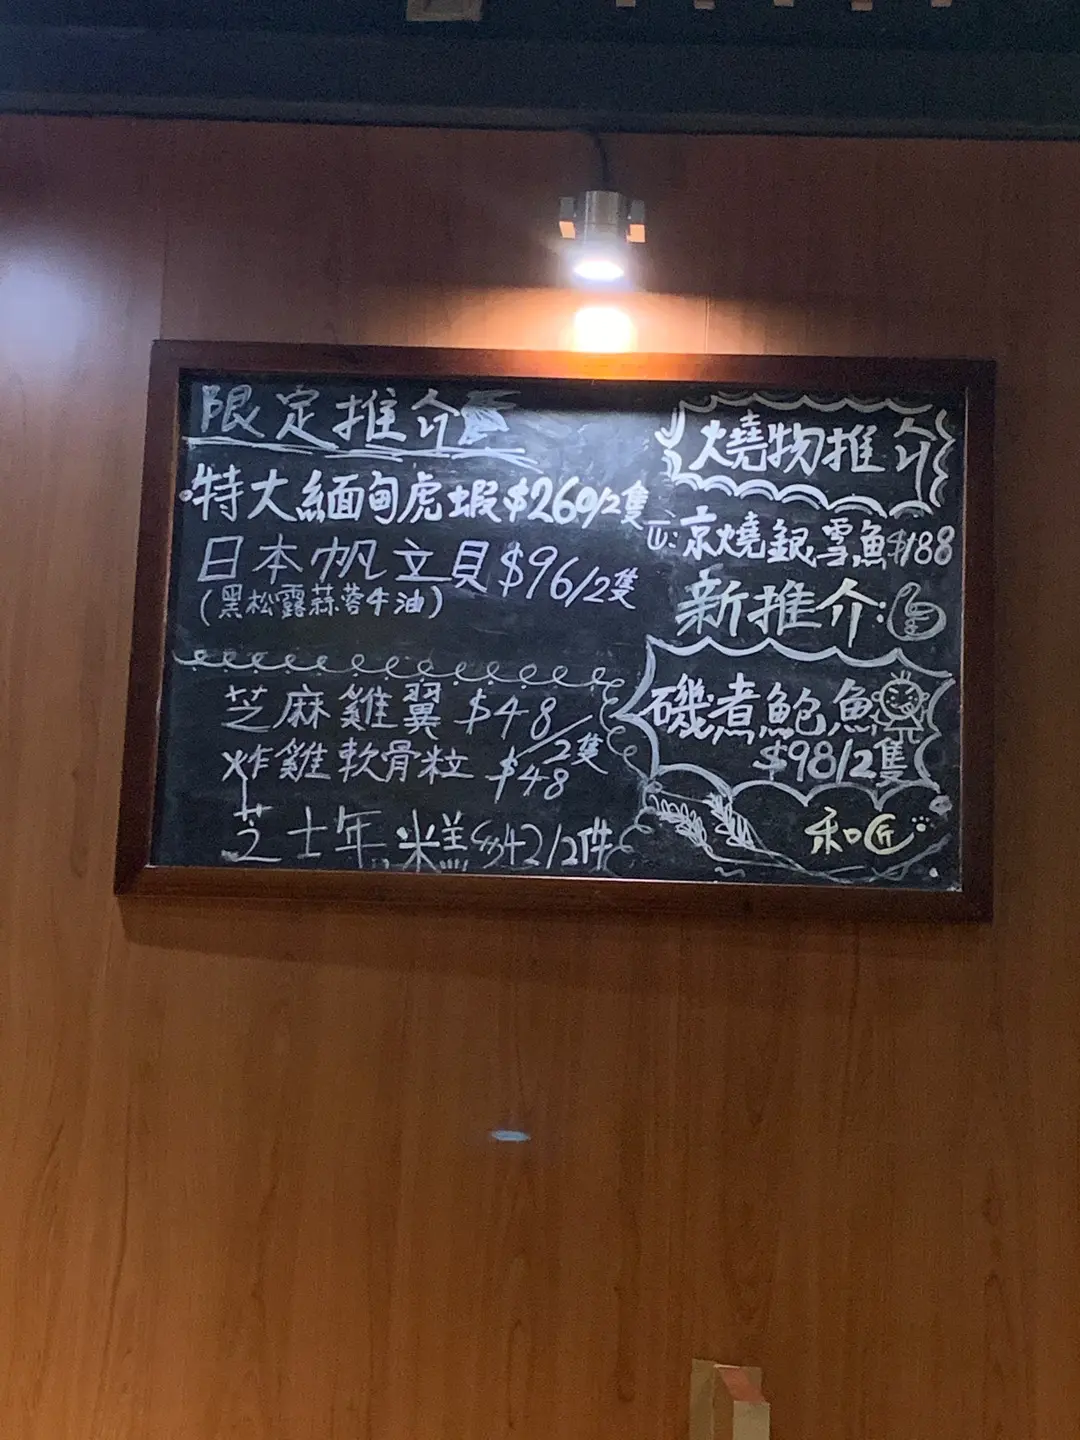 限定推介
特大緬甸虎蝦$260/2隻
日本帆立貝$96/2隻
(黑松露蒜蓉牛油)
芝麻雞翼 $48/2隻
炸雞軟骨粒 $48
芝士年糕$42/2件
燒物推介
京燒銀雪魚$188
新推介:
磯煮鮑魚
$98/2隻
和匠